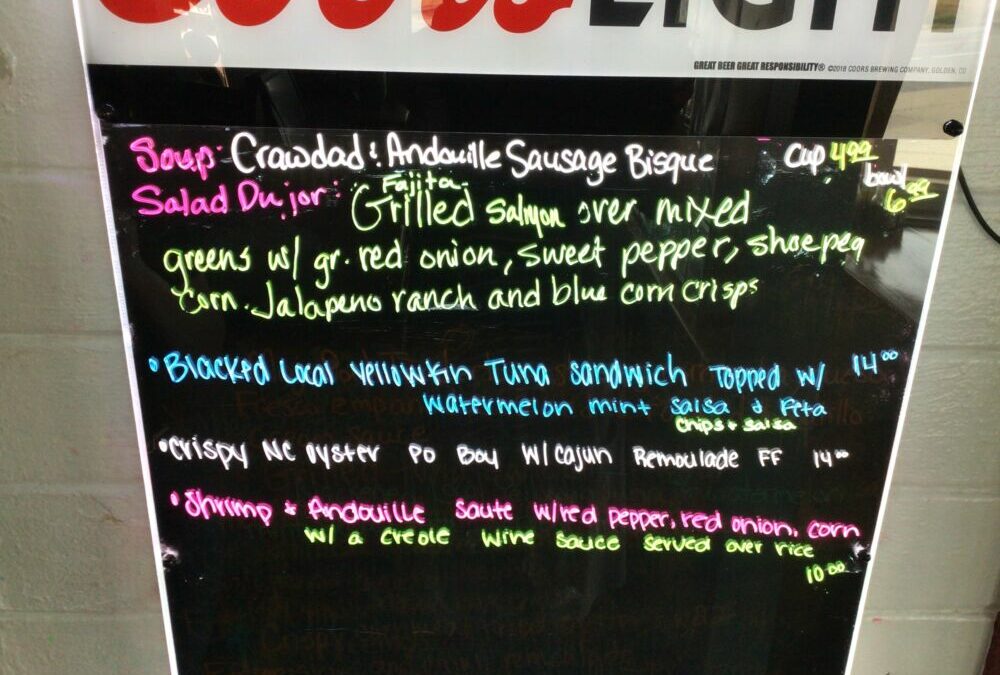 Coors LIGHT
GREAT BEER GREAT RESPONSIBILITY® ©2018 COORS BREWING COMPANY, GOLDEN, CO
Soup: Crawdad & Andouille Sausage Bisque Cup 4.99
bowl 6.99
Salad Dujor: Fajita Grilled Salmon over mixed
greens w/ gr. red onion, sweet pepper, shoepeg
corn. Jalapeno ranch and blue corn crisps
• Blacked Local Yellowfin Tuna sandwich Topped w/ 14.00
watermelon mint salsa & Feta
chips + salsa
• Crispy NC oyster Po Boy w/cajun Remoulade FF 14.00
• Shrimp & Andouille saute w/red pepper, red onion, corn
w/ a creole wine sauce served over rice
10.00